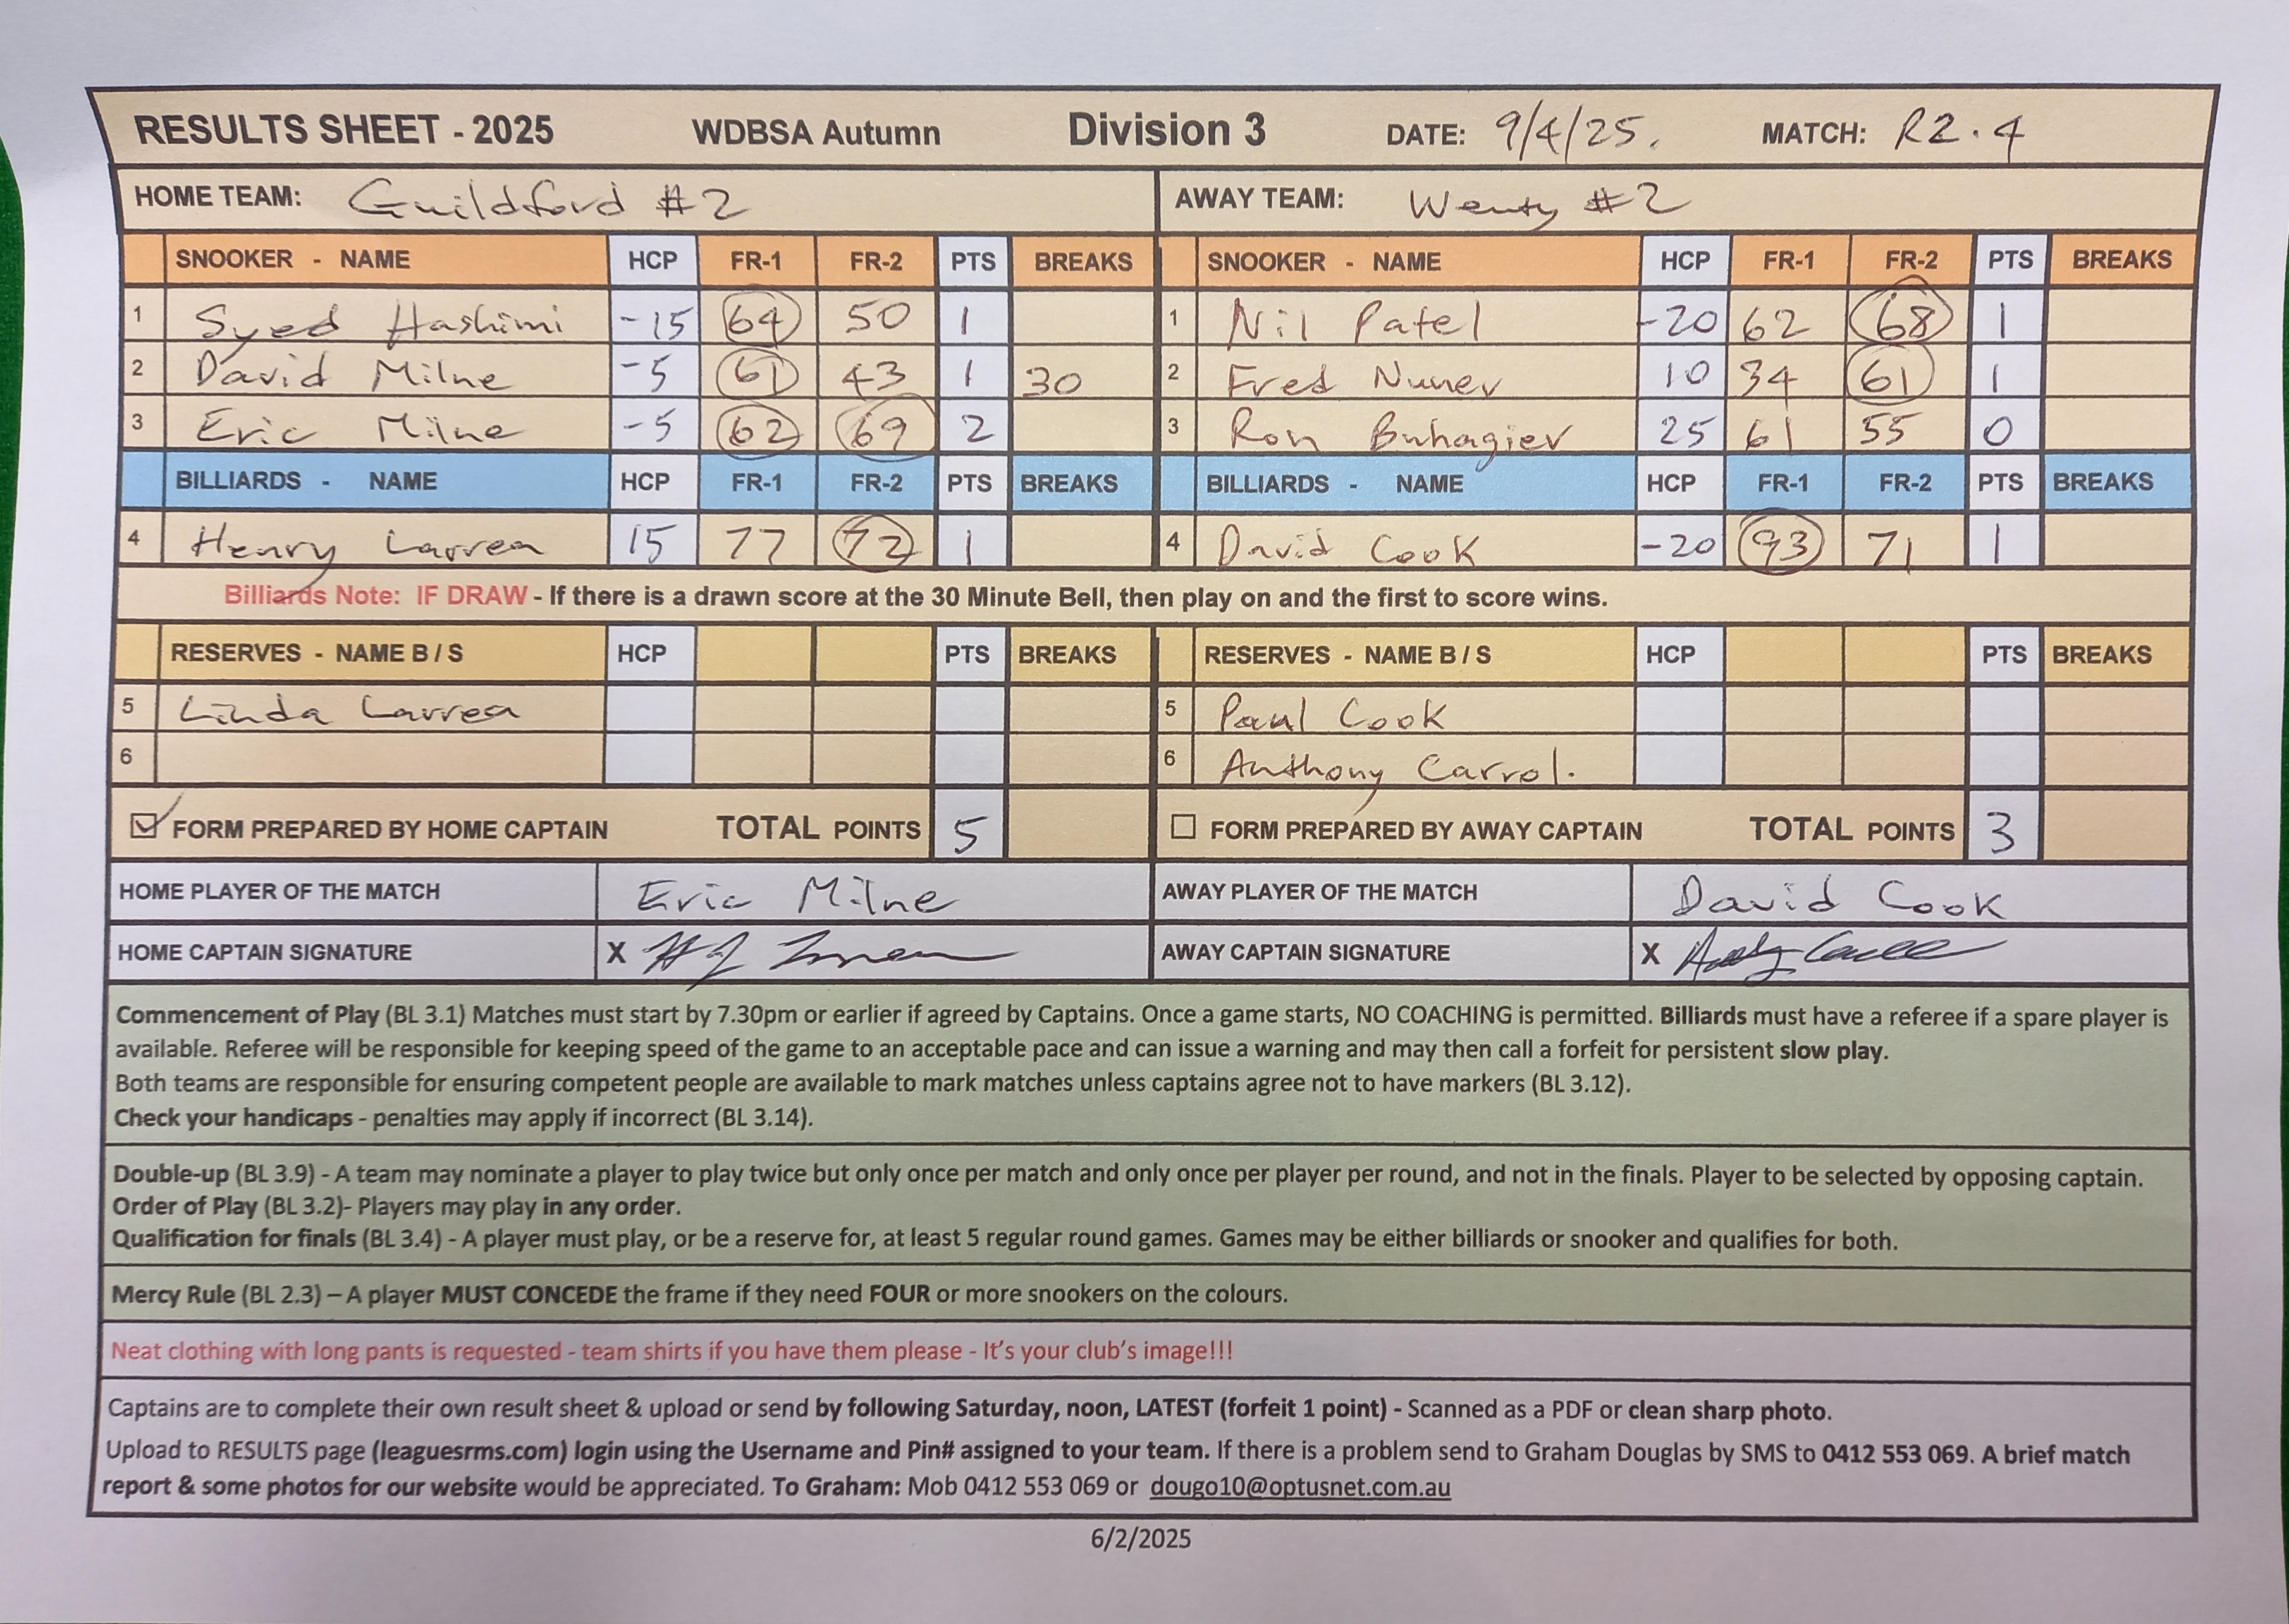 RESULTS SHEET - 2025 WDBSA Autumn Division 3 DATE: 9/4/25. MATCH: R2.4
HOME TEAM: Guildford #2 AWAY TEAM: Wenty #2
SNOOKER - NAME HCP FR-1 FR-2 PTS BREAKS SNOOKER - NAME HCP FR-1 FR-2 PTS BREAKS
1 Syed Hashimi -15 64 50 1 1 Nil Patel -20 62 68 1
2 David Milne -5 61 43 1 30 2 Fred Nunev 10 34 61 1
3 Eric Milne -5 62 69 2 3 Ron Buhagier 25 61 55 0
BILLIARDS - NAME HCP FR-1 FR-2 PTS BREAKS BILLIARDS - NAME HCP FR-1 FR-2 PTS BREAKS
4 Henry Larrea 15 77 72 1 4 David Cook -20 93 71 1
Billiards Note: IF DRAW - If there is a drawn score at the 30 Minute Bell, then play on and the first to score wins.
RESERVES - NAME B / S HCP PTS BREAKS RESERVES - NAME B / S HCP PTS BREAKS
5 Linda Larrea 5 Paul Cook
6 6 Anthony Carrol.
FORM PREPARED BY HOME CAPTAIN TOTAL POINTS 5 FORM PREPARED BY AWAY CAPTAIN TOTAL POINTS 3
HOME PLAYER OF THE MATCH Eric Milne AWAY PLAYER OF THE MATCH David Cook
HOME CAPTAIN SIGNATURE X AWAY CAPTAIN SIGNATURE X
Commencement of Play (BL 3.1) Matches must start by 7.30pm or earlier if agreed by Captains. Once a game starts, NO COACHING is permitted. Billiards must have a referee if a spare player is
available. Referee will be responsible for keeping speed of the game to an acceptable pace and can issue a warning and may then call a forfeit for persistent slow play.
Both teams are responsible for ensuring competent people are available to mark matches unless captains agree not to have markers (BL 3.12).
Check your handicaps - penalties may apply if incorrect (BL 3.14).
Double-up (BL 3.9) - A team may nominate a player to play twice but only once per match and only once per player per round, and not in the finals. Player to be selected by opposing captain.
Order of Play (BL 3.2)- Players may play in any order.
Qualification for finals (BL 3.4) - A player must play, or be a reserve for, at least 5 regular round games. Games may be either billiards or snooker and qualifies for both.
Mercy Rule (BL 2.3) – A player MUST CONCEDE the frame if they need FOUR or more snookers on the colours.
Neat clothing with long pants is requested - team shirts if you have them please - It's your club's image!!!
Captains are to complete their own result sheet & upload or send by following Saturday, noon, LATEST (forfeit 1 point) - Scanned as a PDF or clean sharp photo.
Upload to RESULTS page (leaguesrms.com) login using the Username and Pin# assigned to your team. If there is a problem send to Graham Douglas by SMS to 0412 553 069. A brief match
report & some photos for our website would be appreciated. To Graham: Mob 0412 553 069 or dougo10@optusnet.com.au
6/2/2025